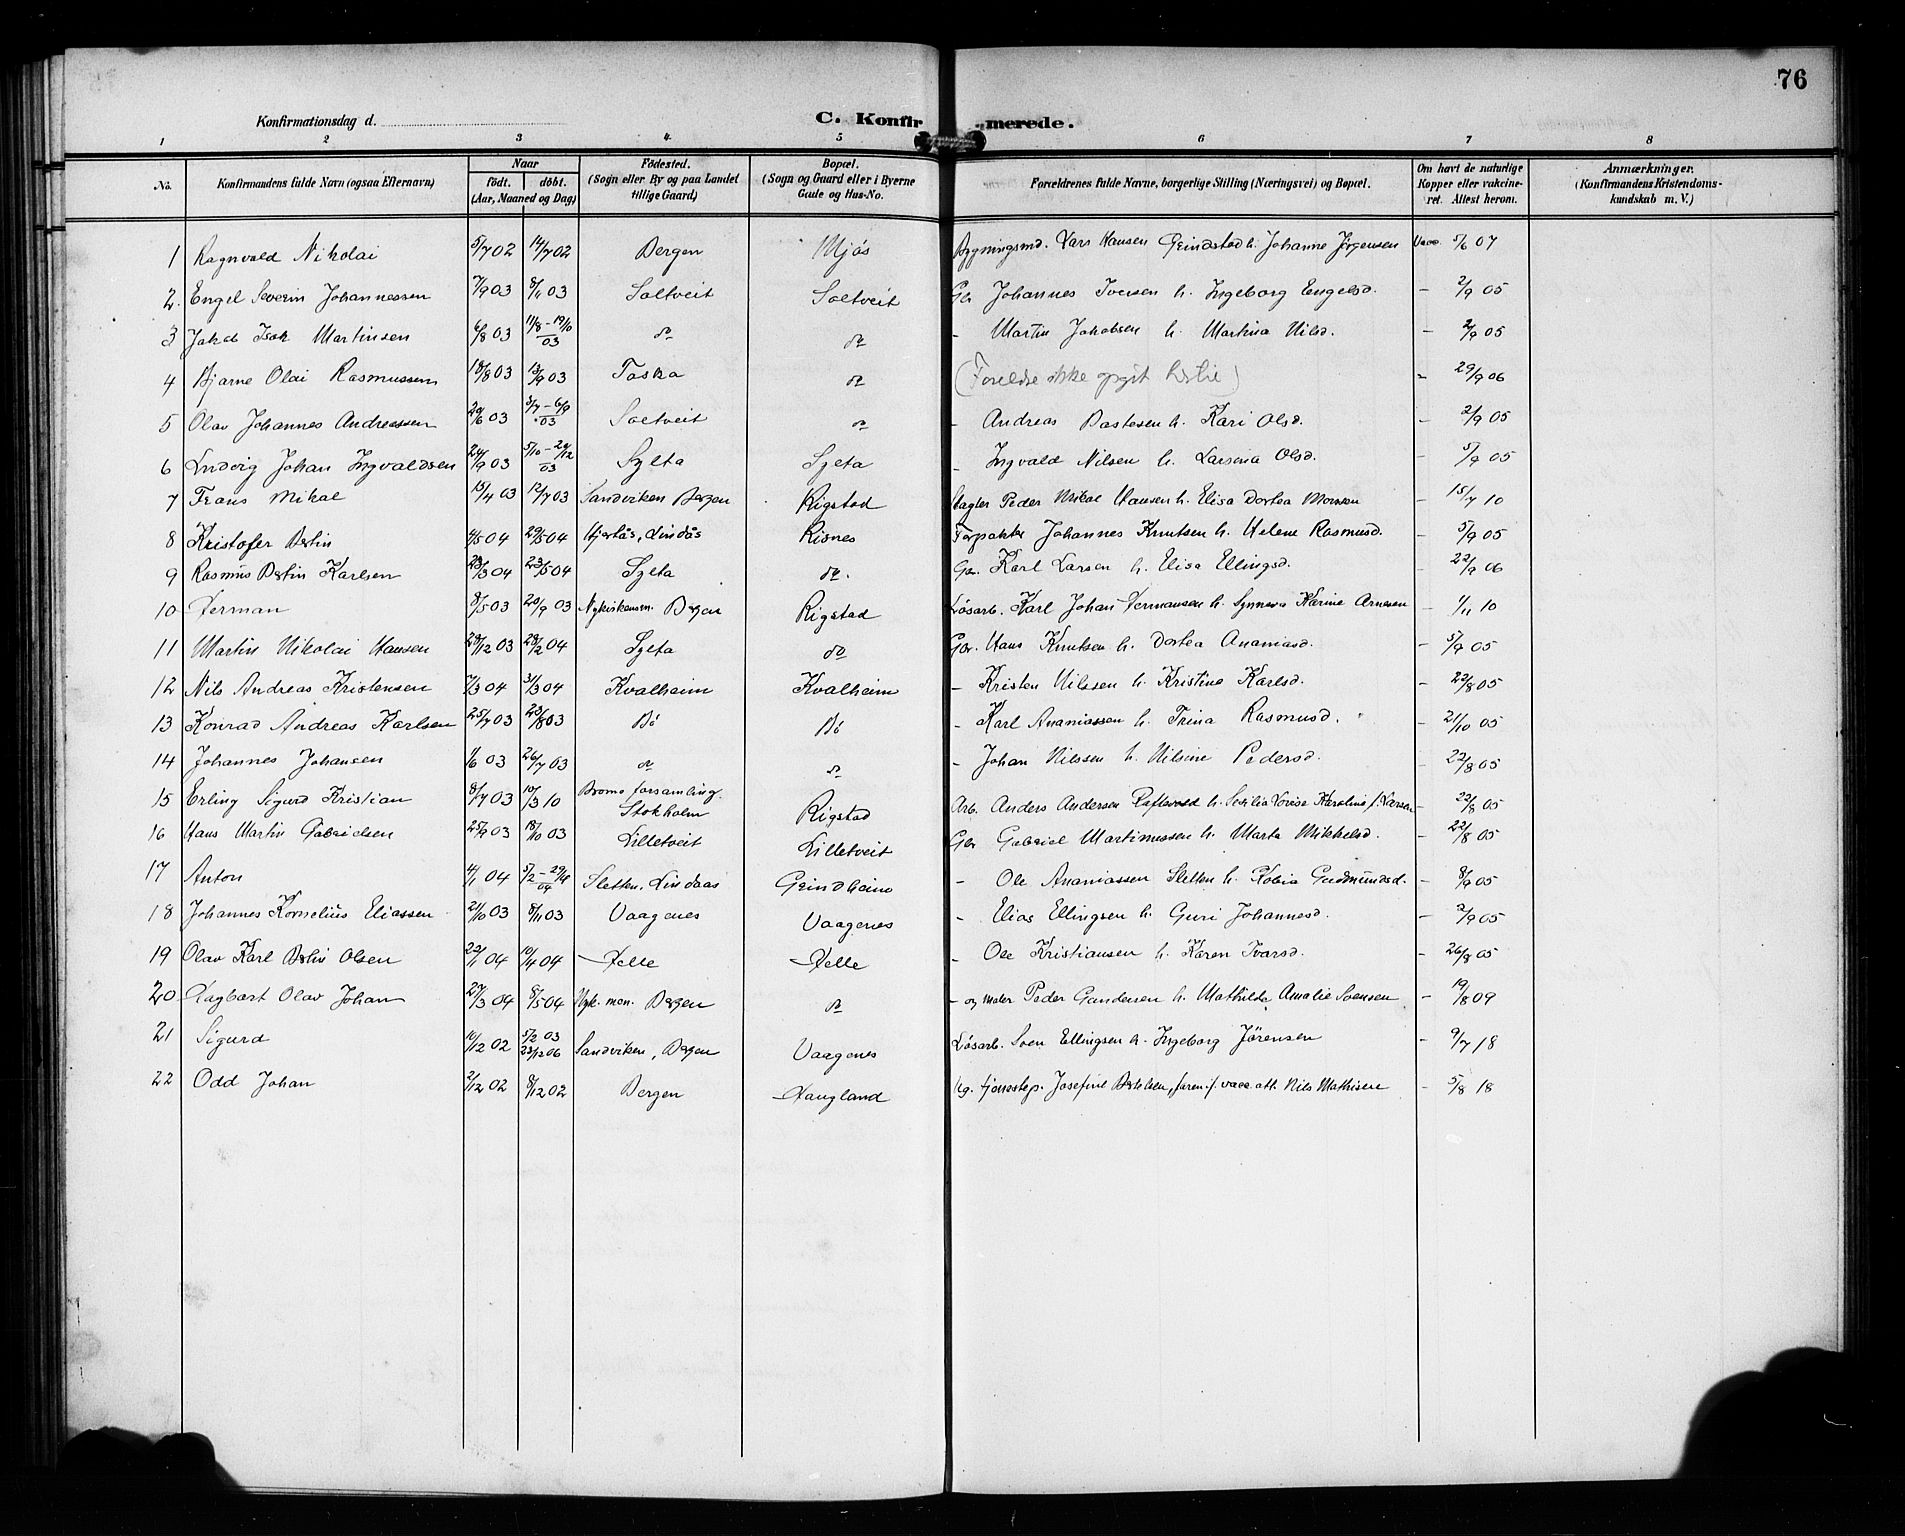 76
Konfirmationsdag d.
C. Konfirmerede.
1 2 3 4 5 6 7 8
No. Konfirmandens fulde Navn (ogsaa Efternavn) Naar födt. döbt. (Aar, Maaned og Dag) Födested. (Sogn eller By og paa Landet tillige Gaard) Bopæl. (Sogn og Gaard eller i Byerne Gade og Hus-No. Forældrenes fulde Navne, borgerlige Stilling (Næringsvei) og Bopæl. Om havt de naturlige Kopper eller vakcineret. Attest herom. Anmærkninger. (Konfirmandens Kristendomskundskab m. V.)
1 Ragnvald Nikolai 5/7 02 14/7 02 Bergen Mjös Bygningssnd. Lars Hansen Grindstad h. Johanne Jörgensen Vacc. 5/6 07
2. Engel Severin Johannessen 7/9 03 8/11 03 Soltveit Soltveit Gbr Johannes Iversen h. Ingeborg Engelsd. - 2/9 05
3 Jakob Isak Martinsen 6/8 03 11/8 - 19/10 03 do do - Martin Jakobsen h. Martina Nilsd. - 2/9 05
4 Bjarne Olai Rasmussen 18/8 03 13/9 03 Toska do (Foreldre ikke opgit) - 29/9 06
5 Olav Johannes Andreassen 29/6 03 5/7 - 6/9 03 Soltveit do - Andreas Bastesen h. Kari Olsd. - 2/9 05
6 Ludvig Johan Ingvaldsen 24/9 03 5/10 - 27/12 03 Sylta Sylta - Ingvald Nilsen h. Larsina Olsd. - 5/9 05
7 Frans Mikal 15/4 03 12/7 03 Sandviken Bergen Rigstad Peder Mikal Hansen h. Elisa Dortea Monsen - 15/7 10
8 Kristofer Bertin 4/5 04 29/5 04 Hjertås, Lindås Risnes Forpakter Johannes Knutsen h. Helene Rasmusd. - 5/9 05
9 Rasmus Bertin Karlsen 28/3 04 23/5 04 Sylta do. Gbr. Karl Larsen h. Elisa Ellingsd. - 22/9 06
10 Herman 8/5 03 20/9 03 Nykirken Bergen Rigstad Lösarb. Karl Johan Hermansen h. Synneva Karine Arnesen - 1/11 10
11 Martin Nikolai Hansen 29/12 03 28/2 04 Sylta do Gbr. Hans Knutsen h. Dortea Ananiasd. - 5/9 05
12 Nils Andreas Kristensen 7/3 04 31/3 04 Kvalheim Kvalheim - Kristen Nilssen h. Kristina Karlsd. - 22/8 05
13 Konrad Andreas Karlsen 25/7 03 23/8 03 Bö Bö - Karl Ananiassen h. Trina Rasmusd. - 21/10 05
14 Johannes Johansen 1/6 03 26/7 03 do do - Johan Nilssen h. Nilsine Pedersd. - 22/8 05
15 Erling Sigurd Kristian 8/7 03 10/3 10 Bromo forsamling. Stokholm Rigstad Arb. Anders Andersen h. Sesilia Lovise Karolina f. Larsen - 22/8 05
16 Hans Martin Gabrielsen 25/9 03 18/10 03 Lilletveit Lilletveit Gbr Gabriel Martinussen h. Marta Mikkelsd. - 22/8 05
17 Anton 4/1 04 5/2 - 24/4 04 Sletten, Lindaas Grindheim - Ole Ananiassen Sletten h. Kobia Gudmundsd. - 8/9 05
18 Johannes Kornelius Eliassen 21/10 03 8/11 03 Vaagenes Vaagenes - Elias Ellingsen h. Guri Johannesd. - 2/9 05
19 Olav Karl Bertin Olsen 22/1 04 10/4 04 Helle Helle - Ole Kristiansen h. Karen Ivarsd. - 26/8 05
20 Dagbart Olav Johan 27/3 04 8/5 04 Nyk. men. Bergen do - og maler Peder Gundersen h. Mathilde Amalie Svensen - 19/8 09
21 Sigurd 10/12 02 5/2 03 23/12 06 Sandviken, Bergen Vaagenes Lösarb. Sven Ellingsen h. Ingeborg Jörensen - 9/7 18
22 Odd Johan 2/12 02 8/12 02 Bergen Haugland Ug. tjenestep. Josefine Bertelsen, f. vacc. att. Nils Mathisen - 5/8 18